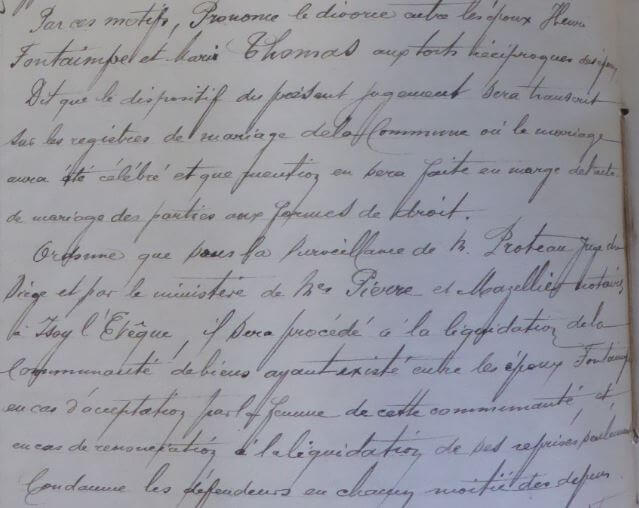 Par ces motifs, Prononce le divorce entre les époux Henri
Fontaimpe et Marie Thomas aux torts réciproques des époux
Dit que le dispositif du présent jugement sera transcrit
sur les registres de mariage de la Commune où le mariage
aura été célébré et que mention en sera faite en marge de l'acte
de mariage des parties aux formes de droit.
Ordonne que sous la surveillance de M. Proteau Juge du
Siège et par le ministère de Mes Pierre et Mazellier notaires
à Issy l'Evêque, il sera procédé à la liquidation de la
Communauté de biens ayant existé entre les époux
en cas d'acceptation par la femme de cette communauté et
en cas de renonciation à la liquidation de ses reprises seulement
Condamne les défendeurs en chacun moitié des dépens.